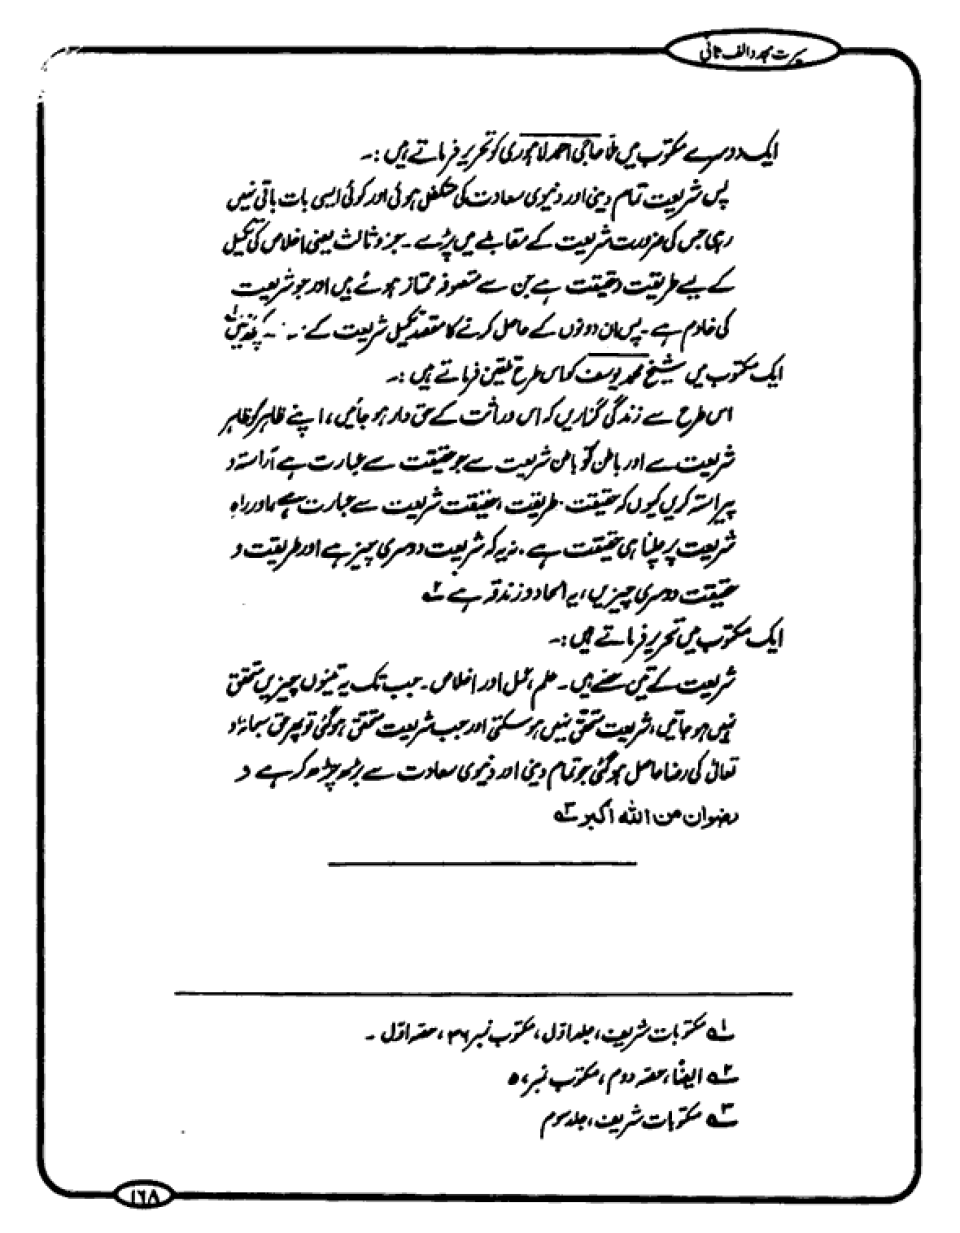 سیرت مجدد الف ثانی
ایک دوسرے مکتوب میں ملا حاجی احمد لاہوری کو تحریر فرماتے ہیں :۔
پس شریعت تمام دینی اور دنیوی سعادت کی متکفل ہوئی اور کوئی ایسی بات باقی نہیں
رہی جس کی ضرورت شریعت کے مقابلے میں پڑے ۔ جزو ثالث یعنی اخلاص کی تکمیل
کے لیے طریقت و حقیقت ہے جن سے متصوفہ ممتاز ہوئے ہیں اور جو شریعت
کی خادم ہے ۔ پس ان دونوں کے حاصل کرنے کا مقصد تکمیل شریعت کے کچھ نہیں ؂۱
ایک مکتوب میں شیخ محمد یوسف کو اس طرح تلقین فرماتے ہیں :۔
اس طرح سے زندگی گزاریں کہ اس وراثت کے حق دار ہو جائیں ، اپنے ظاہر کو ظاہر
شریعت سے اور باطن کو باطن شریعت سے جو حقیقت سے عبارت ہے آراستہ و
پیراستہ کریں کیوں کہ حقیقت طریقت ، حقیقت شریعت سے عبارت ہے ، اور راہِ
شریعت پر چلنا ہی حقیقت ہے ، نہ یہ کہ شریعت دوسری چیز ہے اور طریقت و
حقیقت دوسری چیزیں ، یہ الحاد و زندقہ ہے ؂۲
ایک مکتوب میں تحریر فرماتے ہیں :۔
شریعت کے تین حصے ہیں ۔ علم ، عمل اور اخلاص ۔ جب تک یہ تینوں چیزیں متحقق
نہیں ہو جاتیں ، شریعت متحقق نہیں ہو سکتی اور جب شریعت متحقق ہو گئی تو پھر حق سبحانہٗ و
تعالیٰ کی رضا حاصل ہو گئی جو تمام دینی اور دنیوی سعادت سے بڑھ چڑھ کر ہے و
رضوان من اللہ اکبر ؂۳
؂۱ مکتوبات شریف ، جلد اوّل ، مکتوب نمبر ۳۶ ، حصہ اوّل ۔
؂۲ ایضًا ، حصہ دوم ، مکتوب نمبر
؂۳ مکتوبات شریف ، جلد سوم
۱۶۸